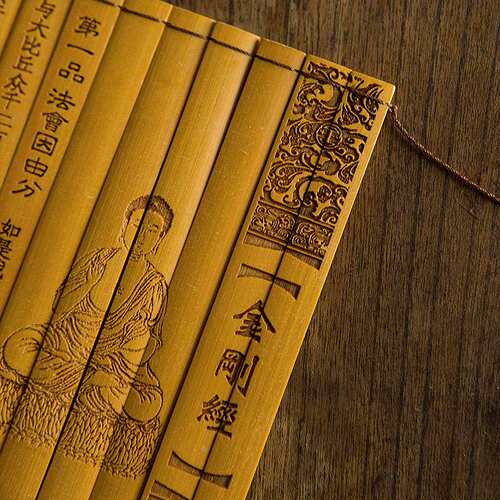 金剛經
第一品法會因由分
如是
與大比丘眾千二